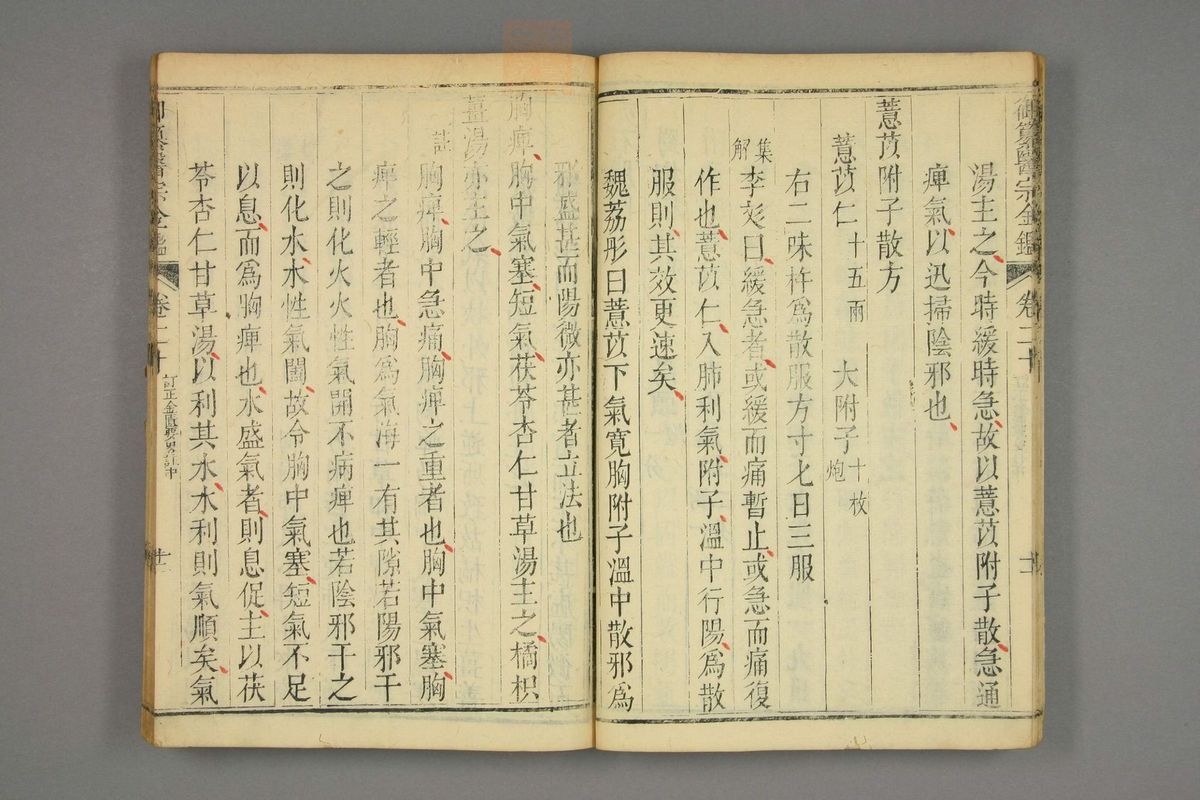 御纂醫宗金鑑 卷二十
湯主之今時緩時急故以薏苡附子散急通
痺氣以迅掃陰邪也
薏苡附子散方
薏苡仁十五兩 大附子十枚炮
右二味杵爲散服方寸匕日三服
集解
李彣曰緩急者或緩而痛暫止或急而痛復
作也薏苡仁入肺利氣附子溫中行陽爲散
服則其效更速矣
魏荔彤曰薏苡下氣寬胸附子溫中散邪爲
邪盛甚而陽微亦甚者立法也
胸痺胸中氣塞短氣茯苓杏仁甘草湯主之橘枳
薑湯亦主之
註
胸痺胸中急痛胸痺之重者也胸中氣塞胸
痺之輕者也胸爲氣海一有其隙若陽邪干
之則化火火性氣開不病痺也若陰邪干之
則化水水性氣闔故令胸中氣塞短氣不足
以息而爲胸痺也水盛氣者則息促主以茯
苓杏仁甘草湯以利其水水利則氣順矣氣
御纂醫宗金鑑 卷二十 訂正金匱要畧註中